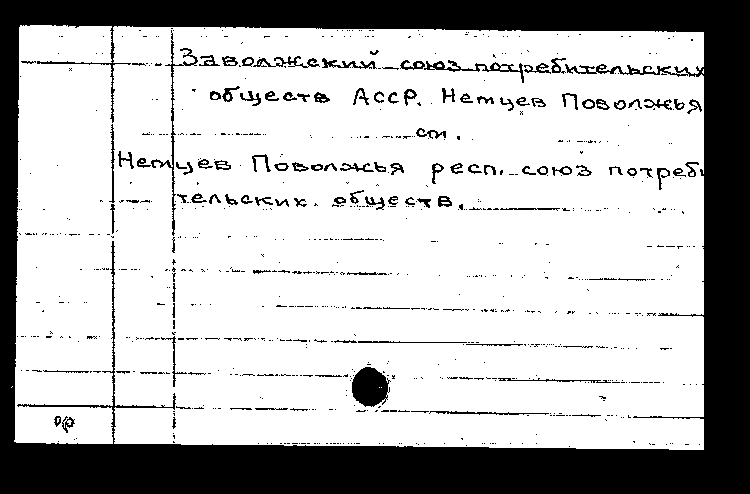 Заволжский союз потребительских
обществ АССР. Немцев Поволжья
см.
Немцев Поволжья респ. союз потреби
тельских обществ.